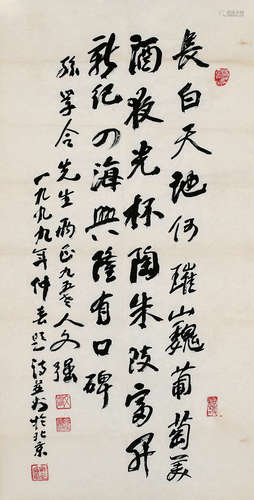 長白天池何璀山巍葡萄美
酒夜光杯陶朱致富昇
新紀四海興隆有口碑
孫學令先生两正九五老人文强
一九九九年仲春題詩並書於北京